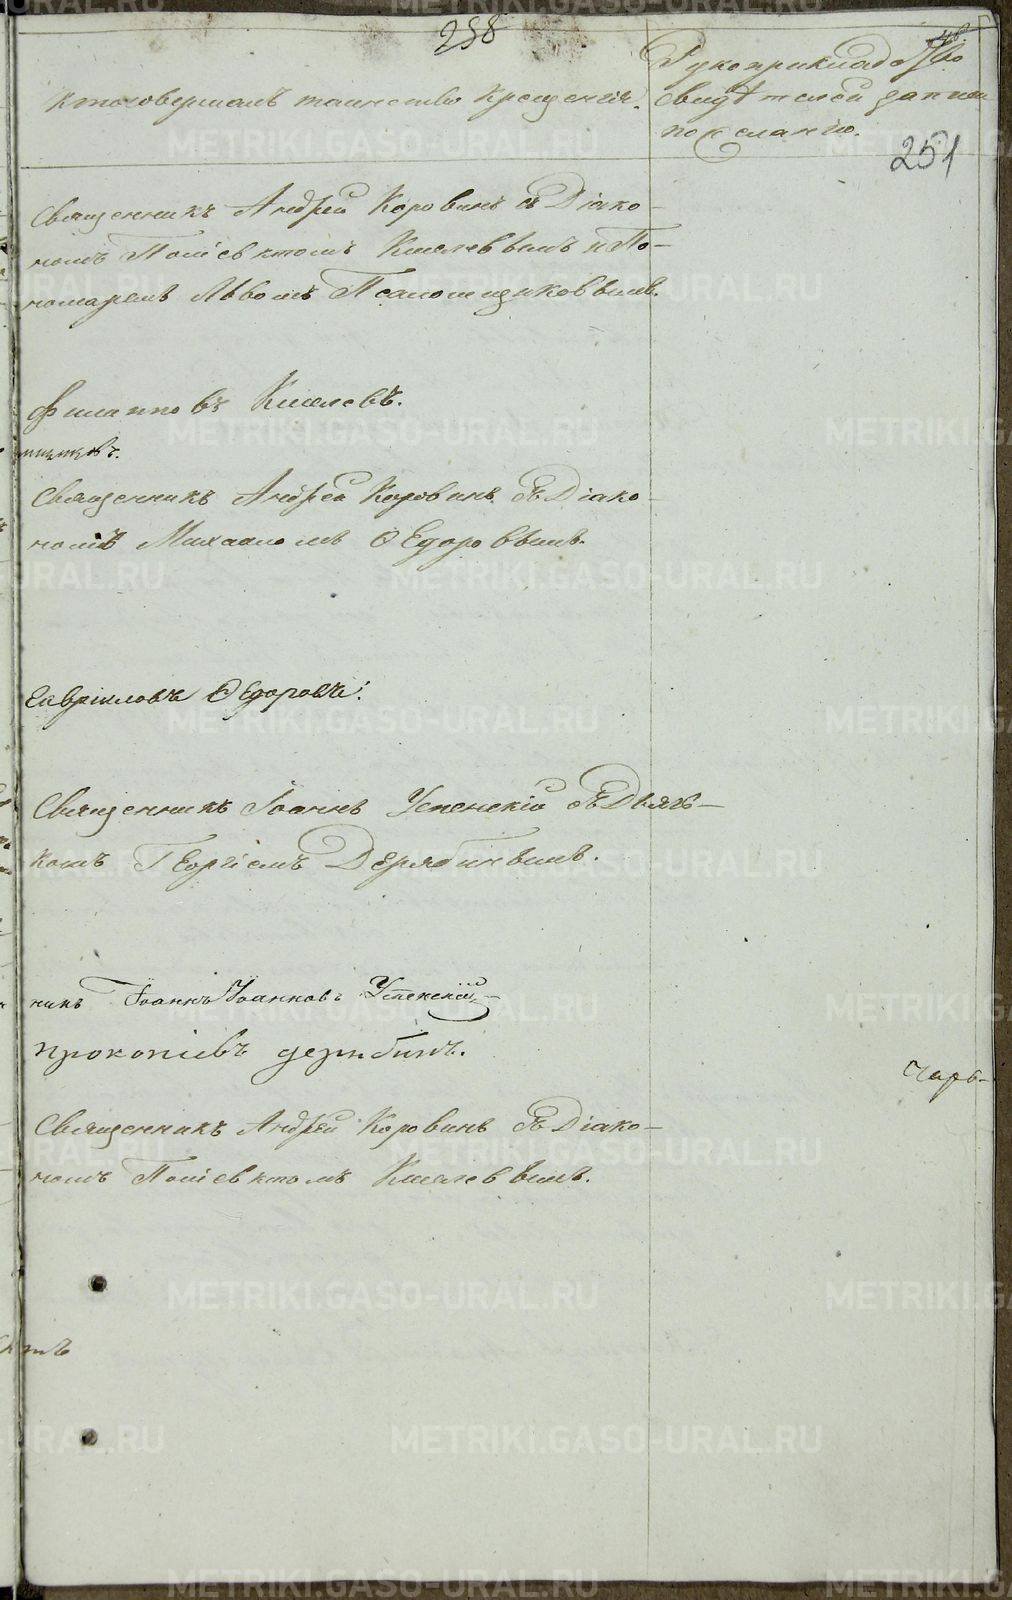 258
251
Кто совершалъ таинство крещенія.
Рукоприкладство
свидѣтелей записи
по желанію.
Священникъ Андрей Коровинъ съ Діако-
номъ Поліевктомъ Киселевымъ и По-
номаремъ Львомъ Псаломщиковымъ.
Филипповъ Киселевъ.
Священникъ Андрей Коровинъ съ Діако-
номъ Михаиломъ Ѳедоровымъ.
Гавріиловъ Ѳедоровъ.
Священникъ Іоаннъ Успенскій съ Дьяч-
комъ Георгіемъ Дерябинымъ.
никъ Іоаннъ Іоанновъ Успенскій
Прокопіевъ Дерябинъ.
Царь-
Священникъ Андрей Коровинъ съ Діако-
номъ Поліевктомъ Киселевымъ.
METRIKI.GASO-URAL.RU